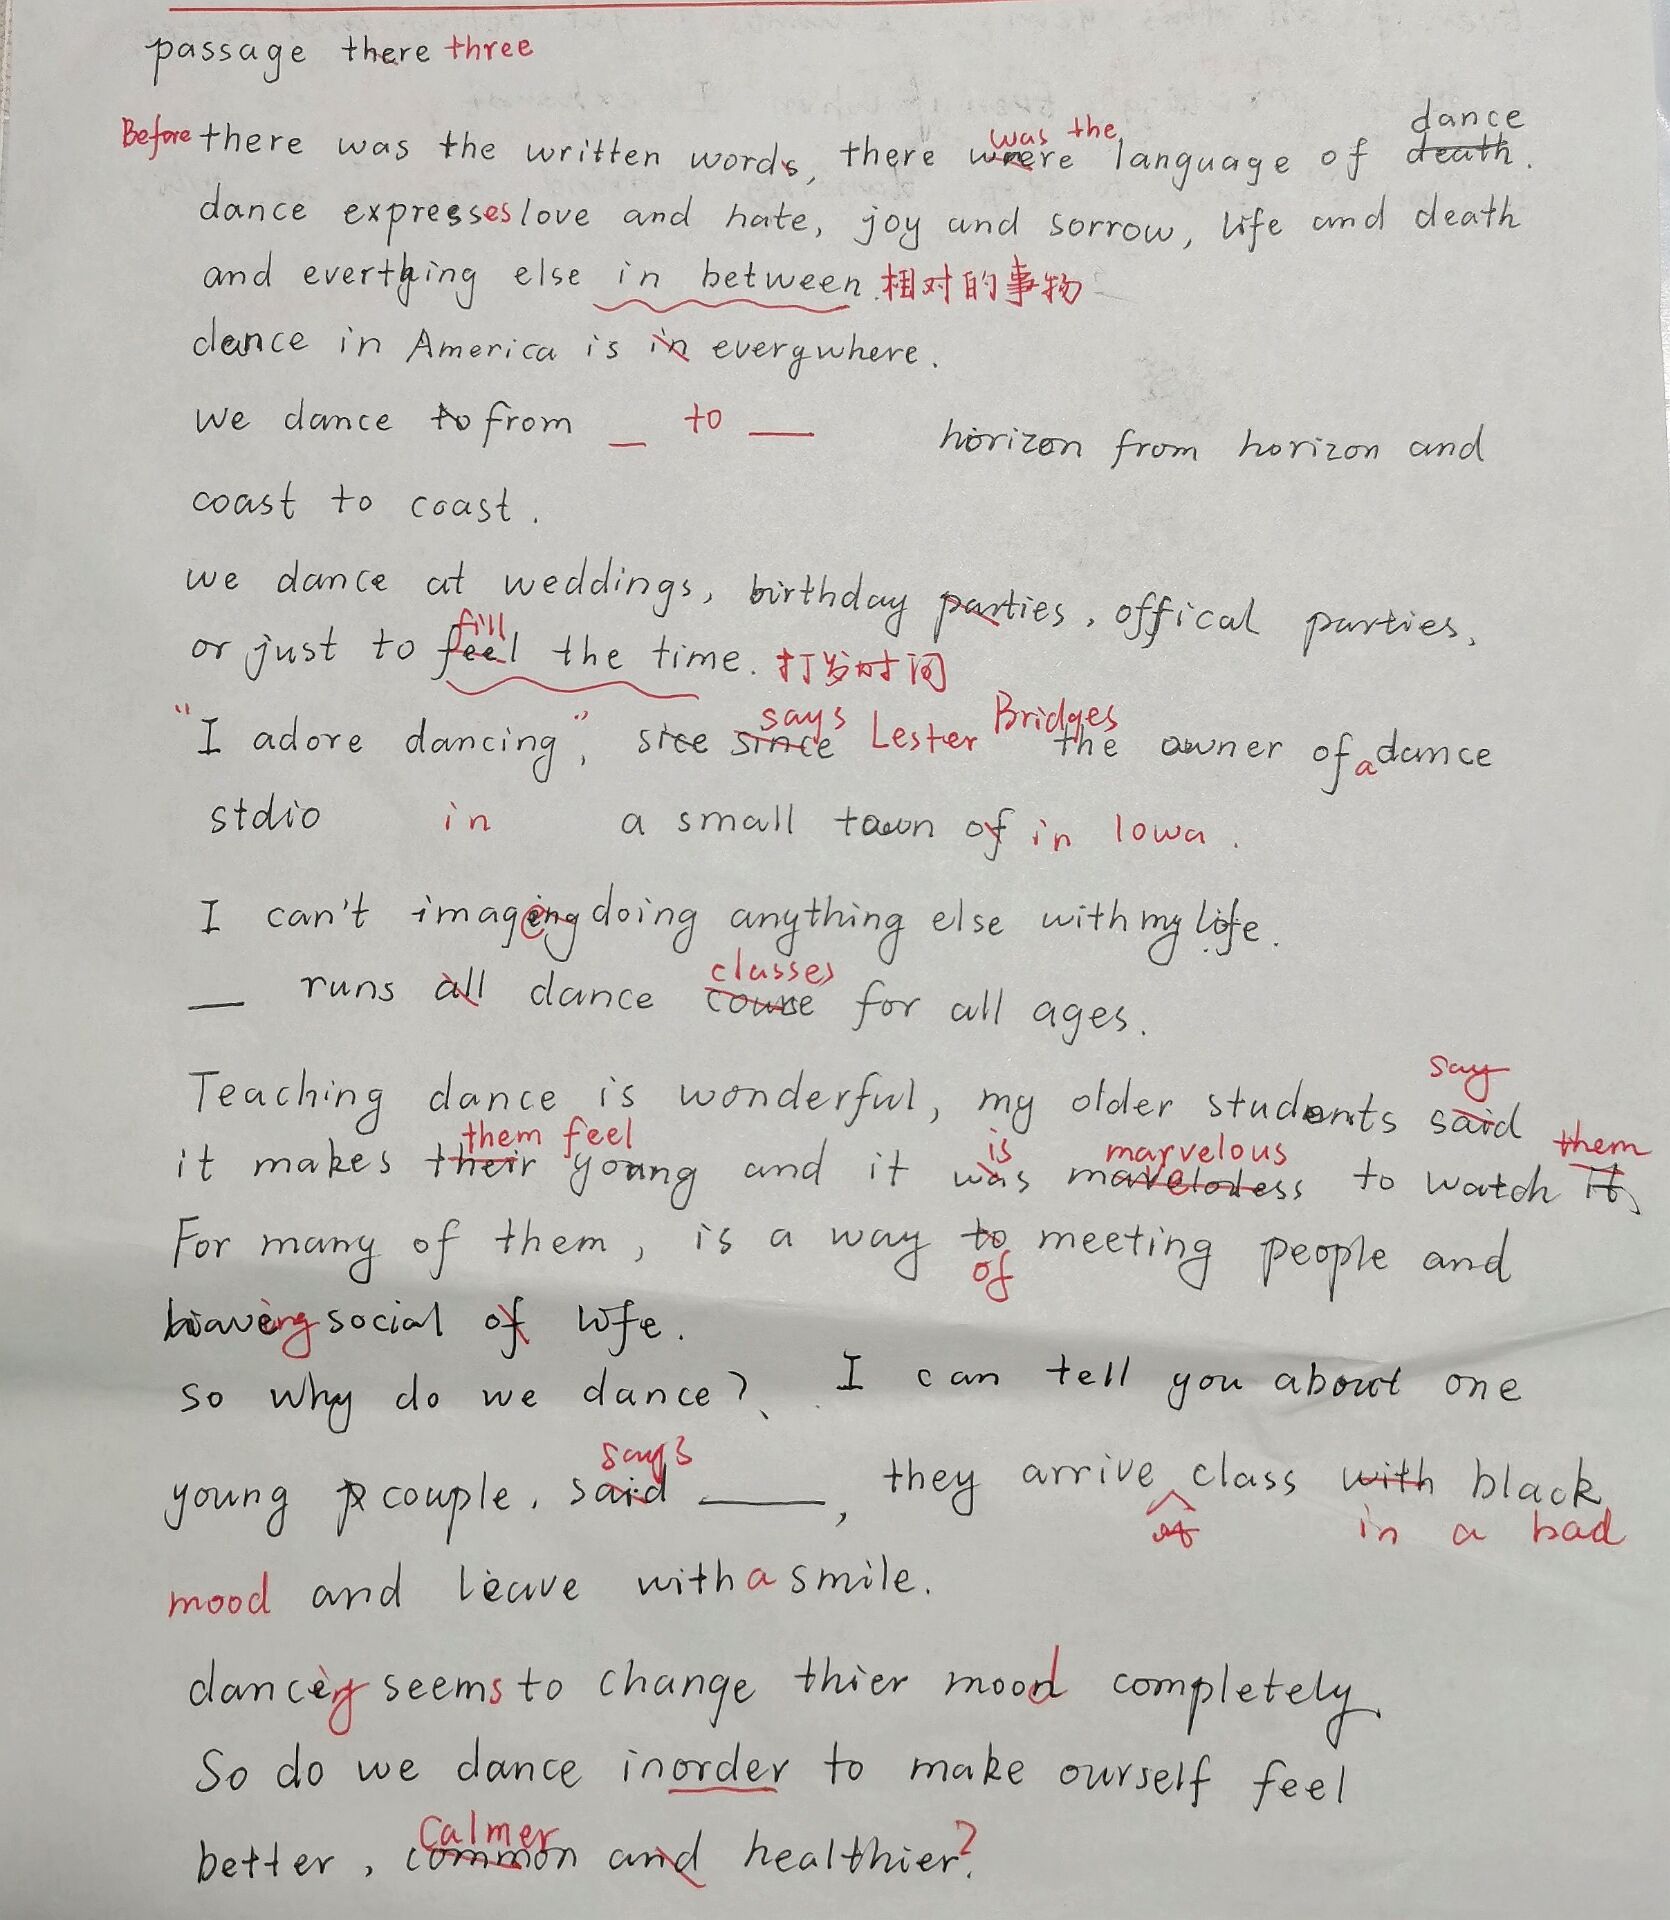 passage there three
Before there was the written words, there were was the language of death dance.
dance expresses love and hate, joy and sorrow, life and death
and everthing else in between. 相对的事物
dance in America is in everywhere.
we dance to from _ to __ horizon from horizon and
coast to coast.
we dance at weddings, birthday parties, offical parties,
or just to feel fill the time. 打发时间
"I adore dancing," sice since says Lester Bridges the owner of a dance
stdio in a small town of in Iowa.
I can't imageing doing anything else with my life.
__ runs all dance course classes for all ages.
Teaching dance is wonderful, my older students said say
it makes their them feel young and it was is maveloless marvelous to watch it them
For many of them, is a way to of meeting people and
having social of life.
so why do we dance? I can tell you about one
young couple, said says ____, they arrive at class with black in a bad
mood and leave with a smile.
dancing seems to change thier mood completely
So do we dance inorder to make ourself feel
better, common calmer and healthier?